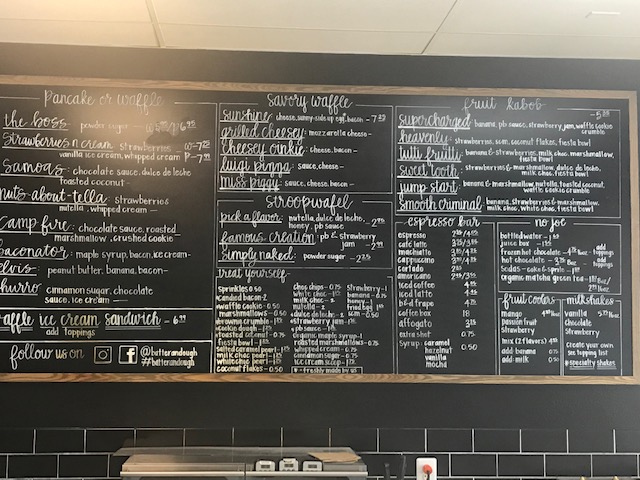 Pancake or waffle
the boss powder sugar w-6.95
Strawberries n cream strawberries w-7.25
vanilla ice cream, whipped cream P-7.75
Samoas chocolate sauce, dulce de leche
toasted coconut
nuts-about-tella strawberries
nutella, whipped cream
Camp fire: chocolate sauce, roasted
marshmallow, crushed cookie
Baconator: maple syrup, bacon, ice cream
elvis: peanut butter, banana, bacon
churro cinnamon sugar, chocolate
sauce, ice cream
waffle ice cream sandwich - 6.99
add toppings
follow us on f @butterandough
#butterandough
Savory waffle
sunshine: cheese, sunny-side up egg, bacon
grilled cheesey: mozzarella cheese
cheesey oinkie: cheese, bacon
luigi pizza: sauce, cheese
miss piggy: sauce, cheese, bacon
stroopwafel
pick a flavor: nutella, dulce de leche,
honey, pb sauce
famous creation: pb & strawberry
jam - 2.99
simply naked: powder sugar - 2.25
treat yourself
sprinkles 0.50
candied bacon-2
waffle cookie-0.50
marshmallows-0.50
cookie dough
toasted coconut-0.75
fiesta bowl
coconut flakes-0.50
choc chips-0.75
white choc
milk choc
nutella
dulce de leche
strawberry jam
pb sauce
organic maple syrup
roasted marshmallows
whipped cream-0.75
cinnamon sugar-0.75
ice cream scoop
Strawberry-1
banana-0.75
honey-1
fried egg
scm-0.50
- freshly made by us
fruit kabob
supercharged: banana, pb sauce, strawberry, jam, waffle cookie
crumble
heavenly: strawberries, scm, coconut flakes, fiesta bowl
tutti fruitti: banana & strawberries, milk choc, marshmallow,
fiesta bowl
sweet tooth: strawberries, marshmallow, dulce de leche,
milk choc, fiesta bowl
jump start: banana & marshmallow, nutella, toasted coconut,
waffle cookie crumble
smooth criminal: banana, strawberries & marshmallow,
milk choc, white choc, fiesta bowl
espresso bar
espresso
cafe latte
macchiato
cappuccino
cortado
americano
iced coffee
iced latte
b+d frapo
coffee box 18
affogato
extra shot 0.75
Syrup: caramel 0.50
hazelnut
vanilla
mocha
no joe
bottled water
juice box
frozen hot chocolate
hot chocolate
Sodas-coke & sprite
organic matcha green tea
add
toppings
add
toppings
fruit coolers
mango
passion fruit
strawberry
mix (2 flavors)
add: banana 0.75
add: milk 0.50
milkshakes
vanilla
Chocolate
Strawberry
Create your own
see topping list
specialty shakes